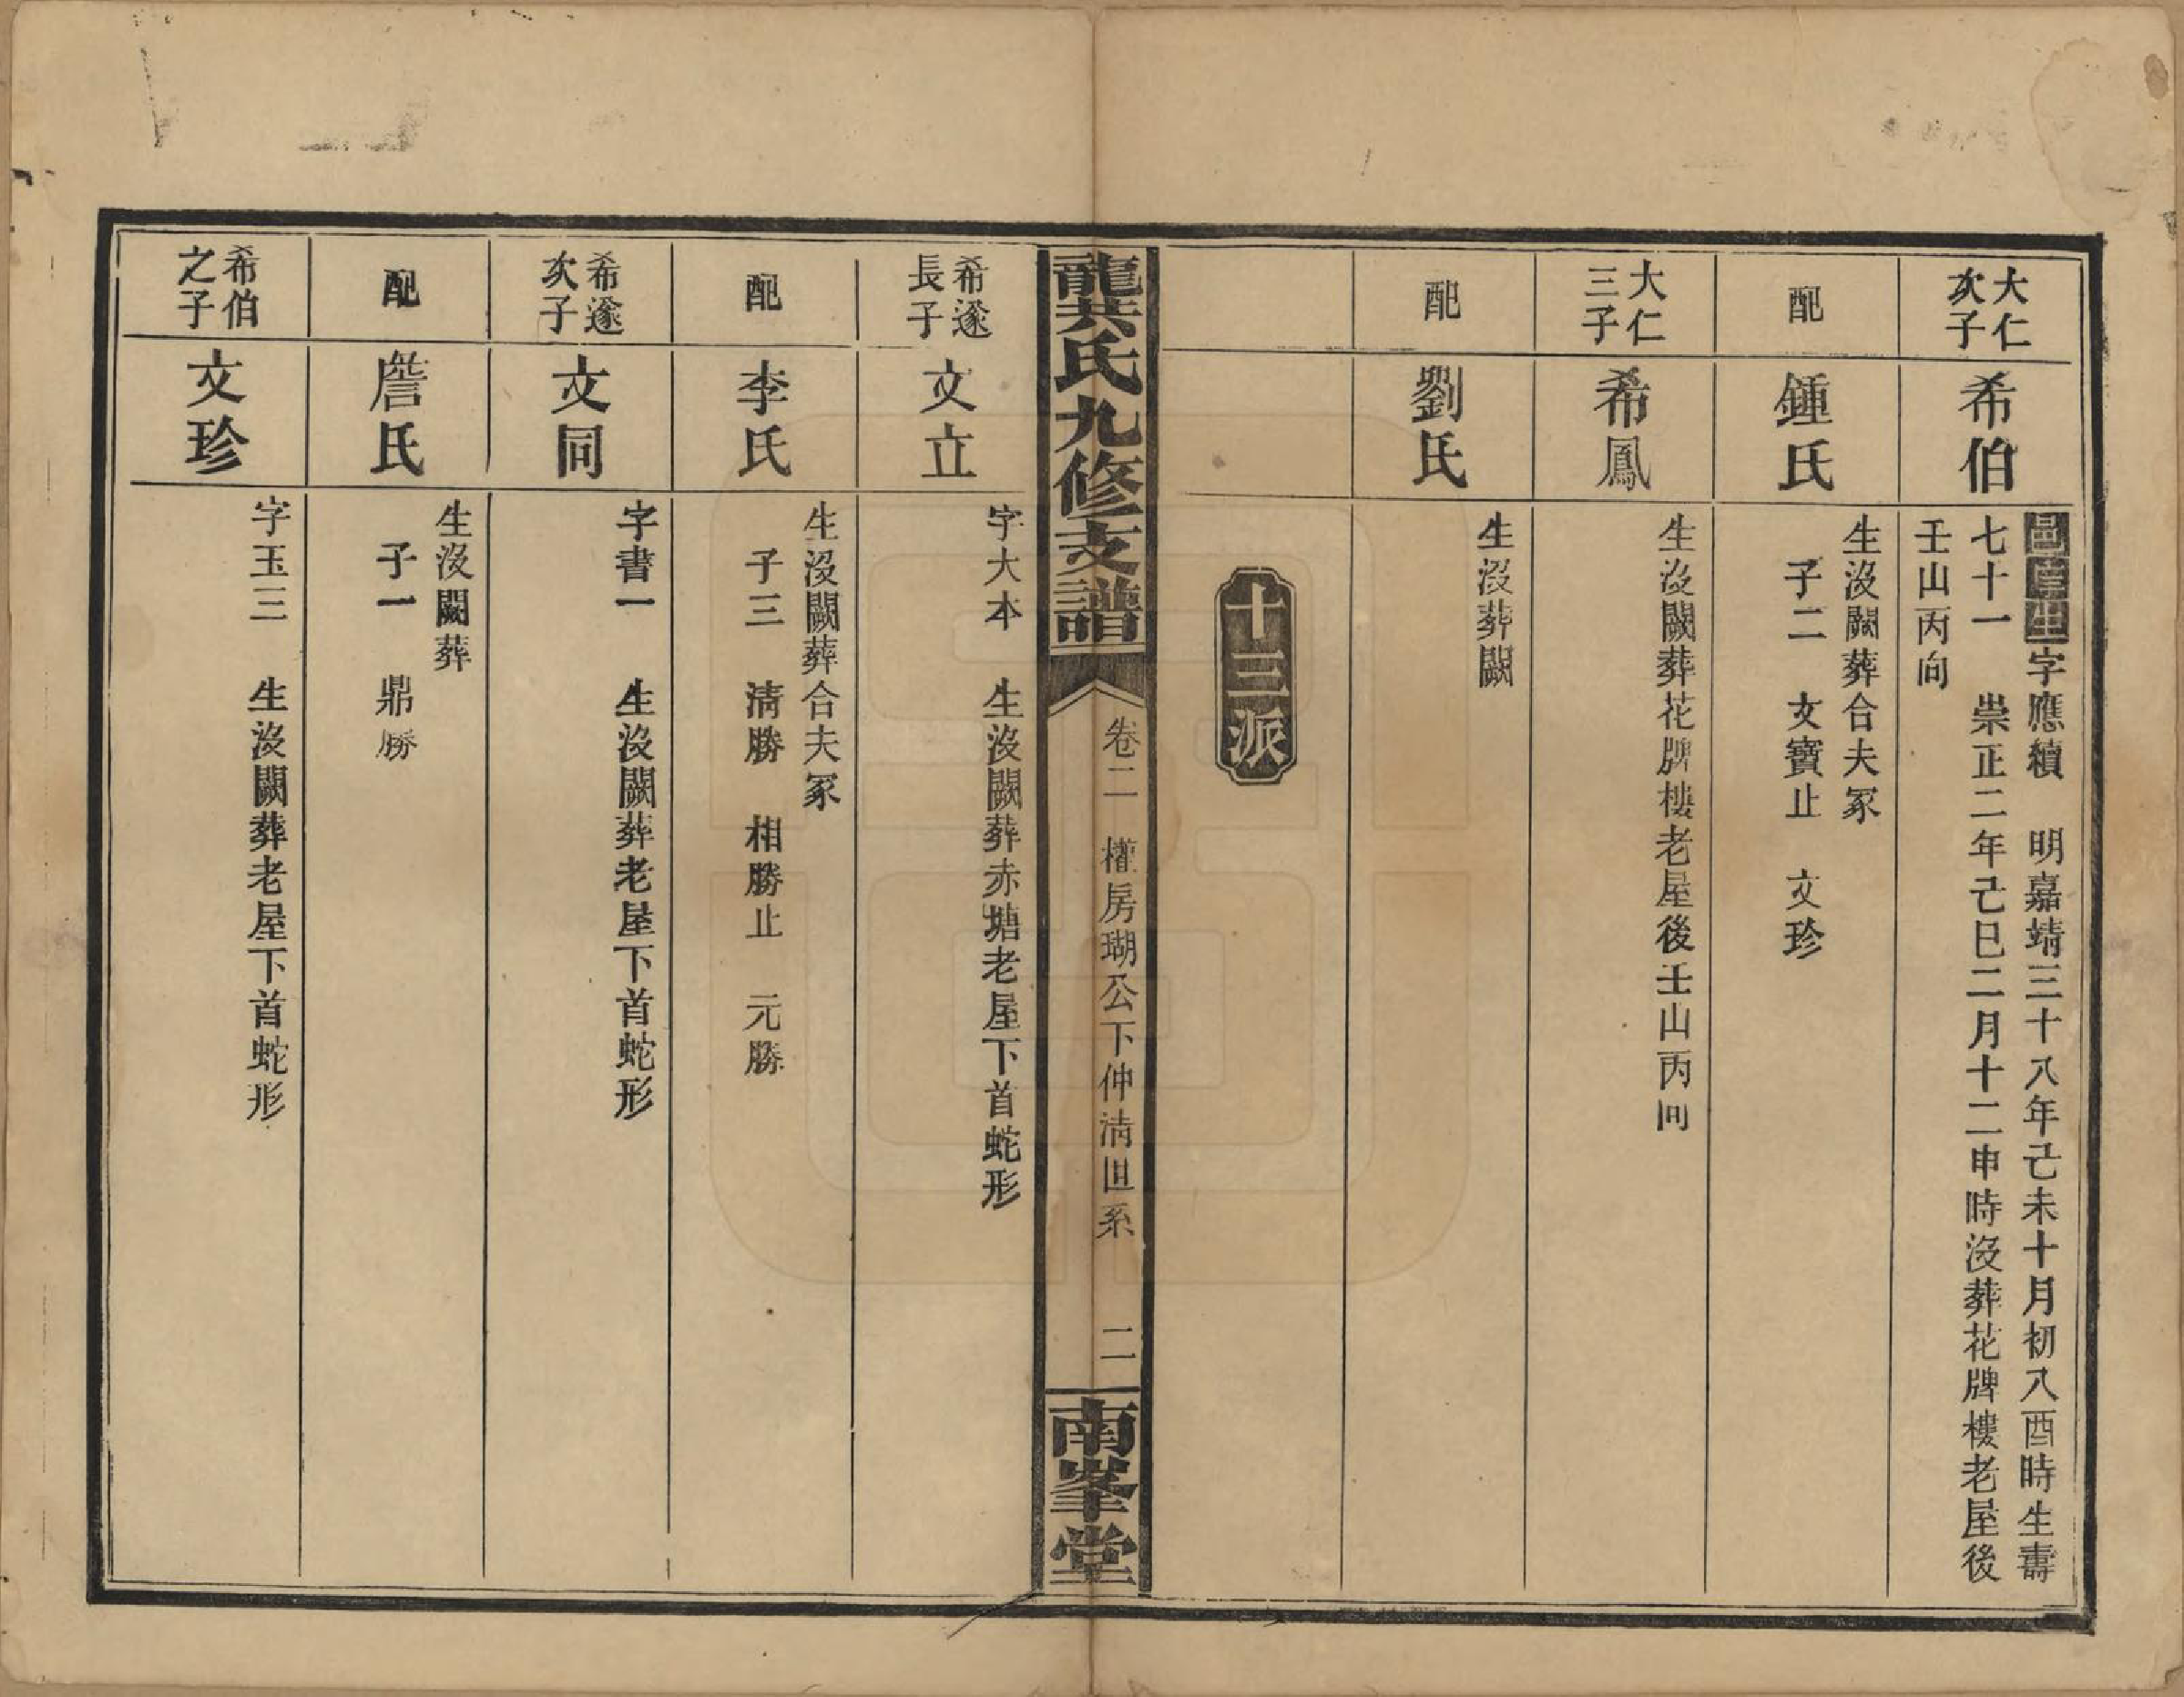 大仁
次子
希伯
邑庠生字應續　明嘉靖三十八年己未十月初八酉時生壽
七十一　崇正二年己巳二月十二申時沒葬花牌樓老屋後
壬山丙向
配
鍾氏
生沒闕葬合夫冢
子二　文寶止　文珍
大仁
三子
希鳳
生沒闕葬花牌樓老屋後壬山丙向
配
劉氏
生沒葬闕
十三派
龍共氏九修支譜
卷二　權房瑚公下仲清世系　二
南峯堂
希邃
長子
文立
字大本　生沒闕葬赤塘老屋下首蛇形
配
李氏
生沒闕葬合夫冢
子三　清勝　相勝止　元勝
希邃
次子
文同
字書一　生沒闕葬老屋下首蛇形
配
詹氏
生沒闕葬
子一　鼎勝
希伯
之子
文珍
字玉三　生沒闕葬老屋下首蛇形